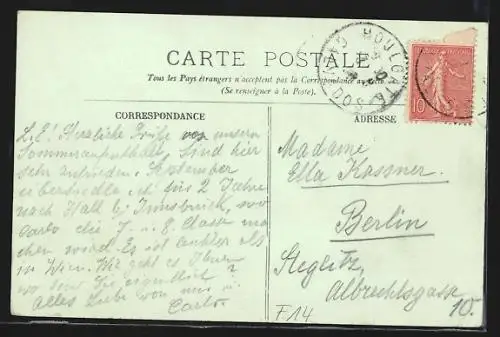 CARTE POSTALE
Tous les Pays étrangers n'acceptent pas la Correspondance au recto
(Se renseigner à la Poste).
CORRESPONDANCE
ADRESSE
HOULGATE
10
L. E! Herzliche Grüße von unserm
Sommeraufenthalt. Sind hier
sehr zufrieden. September
übersiedle ich für 2 Jahre
nach Hall b/ Innsbruck, wo
Carlo die 7. u. 8. Classe ma-
chen wird. Es ist als
in Wien. Wie geht es Ihnen
wo sind Sie eigentlich?
Alles Liebe von uns
Carlo
Madame
Ella Kassner
Berlin
Steglitz,
Albrechtsgasse
10.
F14